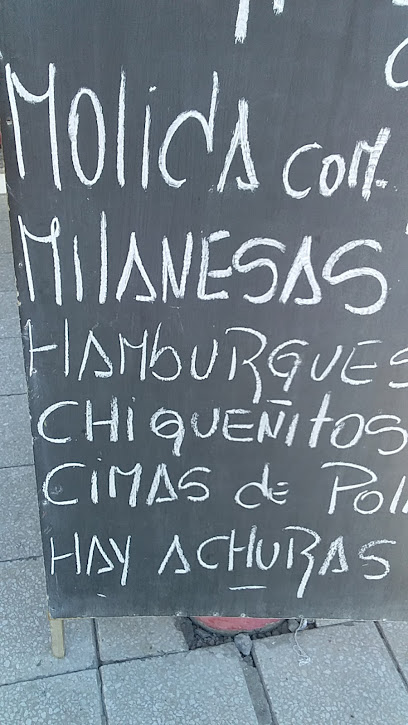 MOLIDA COM.
MILANESAS
HAMBURGUES
CHIQUEÑITOS
CIMAS de POLL
HAY ACHURAS